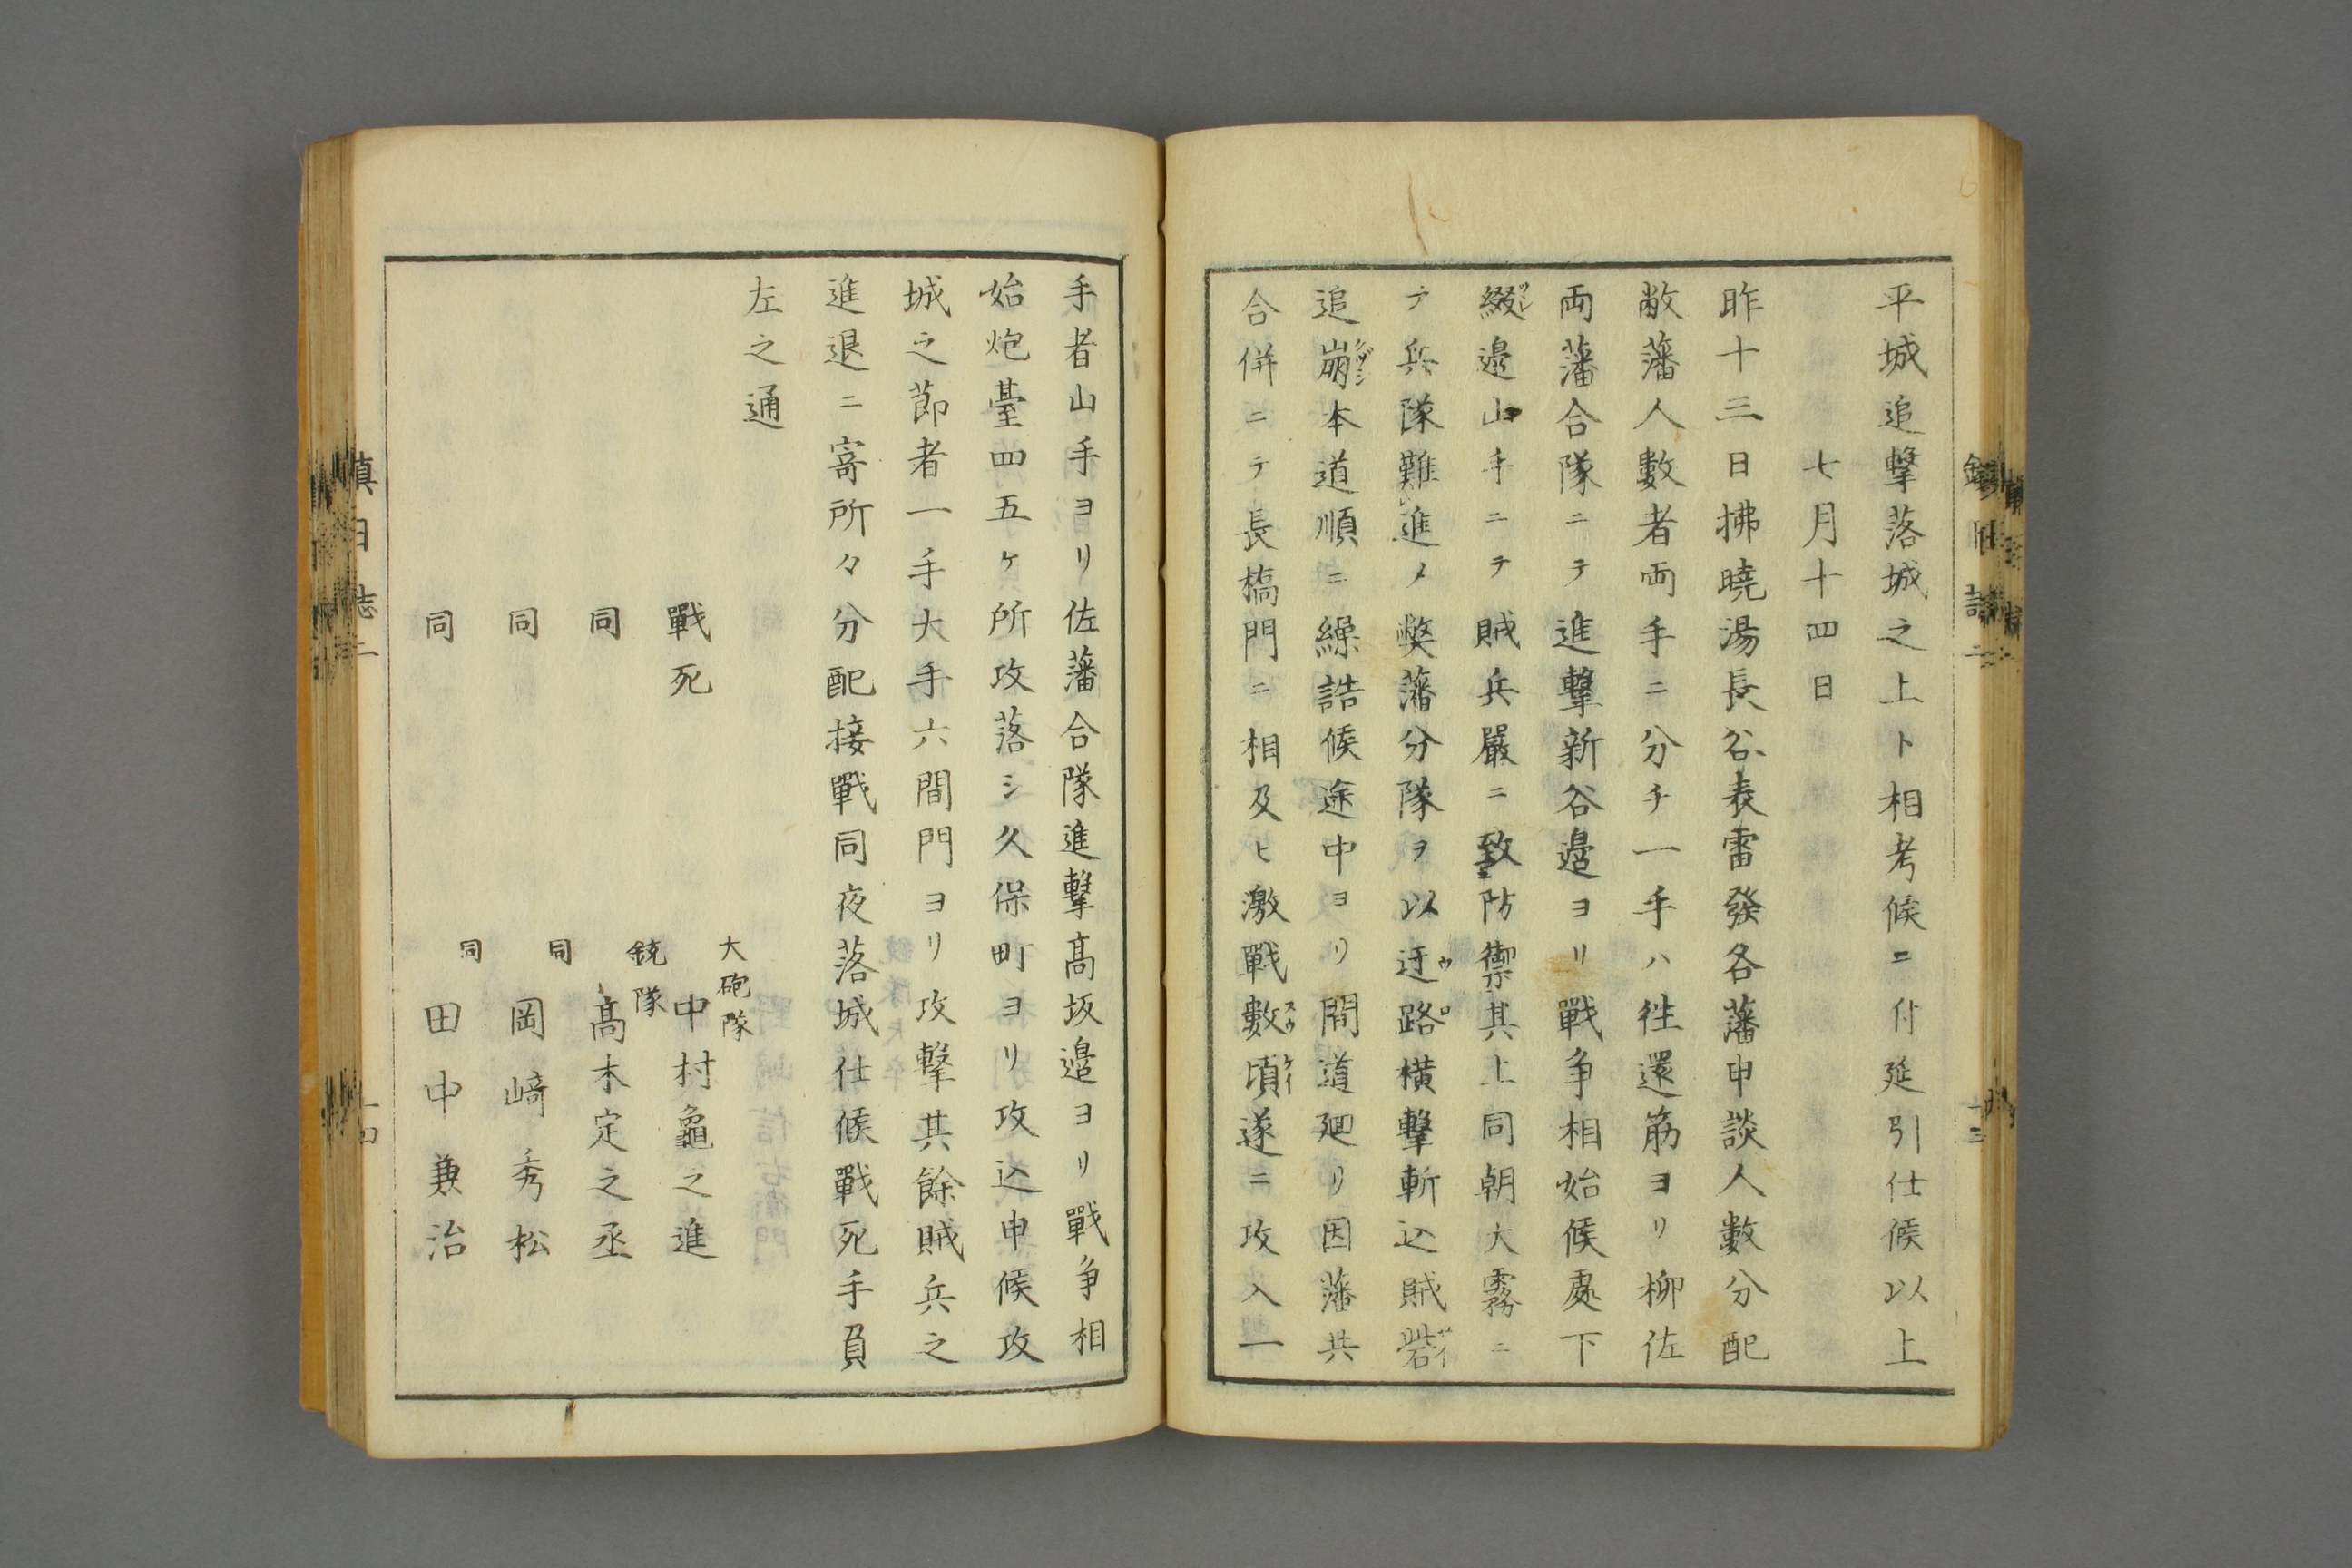 平城追撃落城之上ト相考候ニ付延引仕候以上
七月十四日
昨十三日拂曉湯長谷表雷發各藩申談人數分配
敝藩人數者両手ニ分チ一手ハ徃還筋ヨリ柳佐
両藩合隊ニテ進撃新谷邉ヨリ戰争相始候處下
綴邉山手ニテ賊兵嚴ニ致防禦其上同朝大霧ニ
テ兵隊難進メ弊藩分隊ヲ以迂路横撃斬込賊砦
追崩本道順ニ繰詰候途中ヨリ間道廻リ因藩共
合併ニテ長橋門ニ相及ヒ激戰數頃遂ニ攻入一
手者山手ヨリ佐藩合隊進撃髙坂邉ヨリ戰争相
始炮臺四五ケ所攻落シ久保町ヨリ攻込申候攻
城之節者一手大手六間門ヨリ攻撃其餘賊兵之
進退ニ寄所々分配接戰同夜落城仕候戰死手負
左之通
戰死 大砲隊 中村龜之進
同 銃隊 髙木定之丞
同 同 岡﨑秀松
同 同 田中兼治
鎮日誌二
十三
鎮日誌二
十四